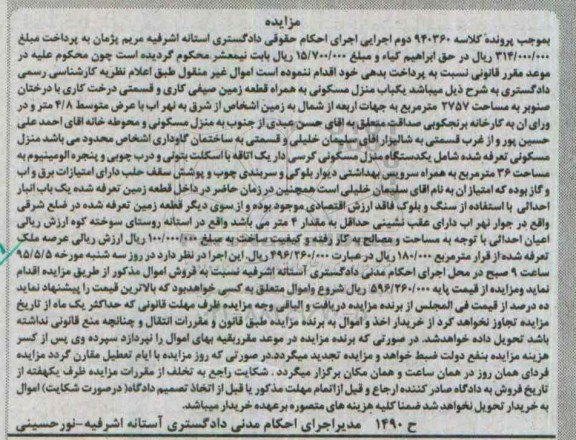 مزایده
بموجب پرونده کلاسه ۹۴۰۳۶۰ دوم اجرایی اجرای احکام حقوقی دادگستری آستانه اشرفیه مریم پژمان به پرداخت مبلغ
۳۱۴/۰۰۰/۰۰۰ ریال در حق ابراهیم کیاء و مبلغ ۱۵/۷۰۰/۰۰۰ ریال بابت نیمعشر محکوم گردیده است چون محکوم علیه در
موعد مقرر قانونی نسبت به پرداخت بدهی خود اقدام ننموده است اموال غیر منقول طبق اعلام نظریه کارشناسی رسمی
دادگستری به شرح ذیل میباشد یکباب منزل مسکونی به همراه قطعه زمین صیفی کاری و قسمتی درخت کاری با درختان
صنوبر به مساحت ۲۷۵۷ مترمربع به جهات اربعه از شمال به زمین اشخاص از شرق به نهر اب با عرض متوسط ۴/۸ متر و در
ورای ان به کارخانه برنجکوبی صداقت متعلق به اقای حسن عبدی از جنوب به منزل مسکونی و محوطه خانه اقای احمد علی
حسین پور و از غرب قسمتی به شالیزار اقای سلیمان خلیلی و قسمتی به ساختمان گاوداری اشخاص محدود می باشد منزل
مسکونی تعرفه شده شامل یکدستگاه منزل مسکونی کرسی دار یک اتاقه با اسکلت بتونی و درب چوبی و پنجره آلومینیوم به
مساحت ۳۶ مترمربع به همراه سرویس بهداشتی دیوار بلوکی و سربندی چوب و پوشش سقف حلب دارای امتیازات برق و اب
و گاز بوده که امتیاز ان به نام اقای سلیمان خلیلی است همچنین در زمان حاضر در داخل قطعه زمین تعرفه شده یک باب انبار
احداثی با استفاده از سنگ و بلوک فاقد ارزش اقتصادی موجود بوده و از سوی دیگر قطعه زمین تعرفه شده در ضلع شرقی
واقع در جوار نهر اب دارای عقب نشینی حداقل به مقدار ۴ متر می باشد واقع در استانه روستای سوخته کوه ارزش ریالی
اعیان احداثی با توجه به مساحت و مصالح به کار رفته و کیفیت ساخت به مبلغ ۱۰۰/۰۰۰/۰۰۰ ریال ارزش ریالی عرصه ملک
تعرفه شده از قرار مترمربع ۱۸۰/۰۰۰ ریال در عبارت ۴۹۶/۲۶۰/۰۰۰ ریال، این اجرا در نظر دارد در روز سه شنبه مورخه ۹۵/۵/۵
ساعت ۹ صبح در محل اجرای احکام مدنی دادگستری آستانه اشرفیه نسبت به فروش اموال مذکور از طریق مزایده اقدام
نماید ومزایده از قیمت پایه ۵۹۶/۲۶۰/۰۰۰ ریال شروع واموال متعلق به کسی خواهدبود که بالاترین قیمت را پیشنهاد نماید
ده درصد از قیمت فی المجلس از برنده مزایده دریافت و الباقی وجه مزایده ظرف مهلت قانونی که حداکثر یک ماه از تاریخ
مزایده تجاوز نخواهد کرد از خریدار اخذ و اموال به برنده مزایده طبق قانون و مقررات انتقال و چنانچه منع قانونی نداشته
باشد تحویل داده خواهدشد. در صورتی که برنده مزایده در موعد مقرربقیه بهای اموال را نپردازد سپرده وی پس از کسر
هزینه مزایده بنفع دولت ضبط خواهد و مزایده تجدید میگردد.در صورتی که روز مزایده با ایام تعطیل مقارن گردد مزایده
فردای همان روز در همان ساعت و همان مکان برگزار میگردد . شکایت راجع به تخلف از مقررات مزایده ظرف یکهفته از
تاریخ فروش به دادگاه صادر کننده ارجاع و قبل ازاتمام مهلت مذکور یا قبل از اتخاذ تصمیم دادگاه( درصورت شکایت) اموال
به خریدار تحویل نخواهد شد ضمنا کلیه هزینه های متصوره برعهده خریدار میباشد.
ح ۱۴۹۰ مدیراجرای احکام مدنی دادگستری آستانه اشرفیه-نورحسینی